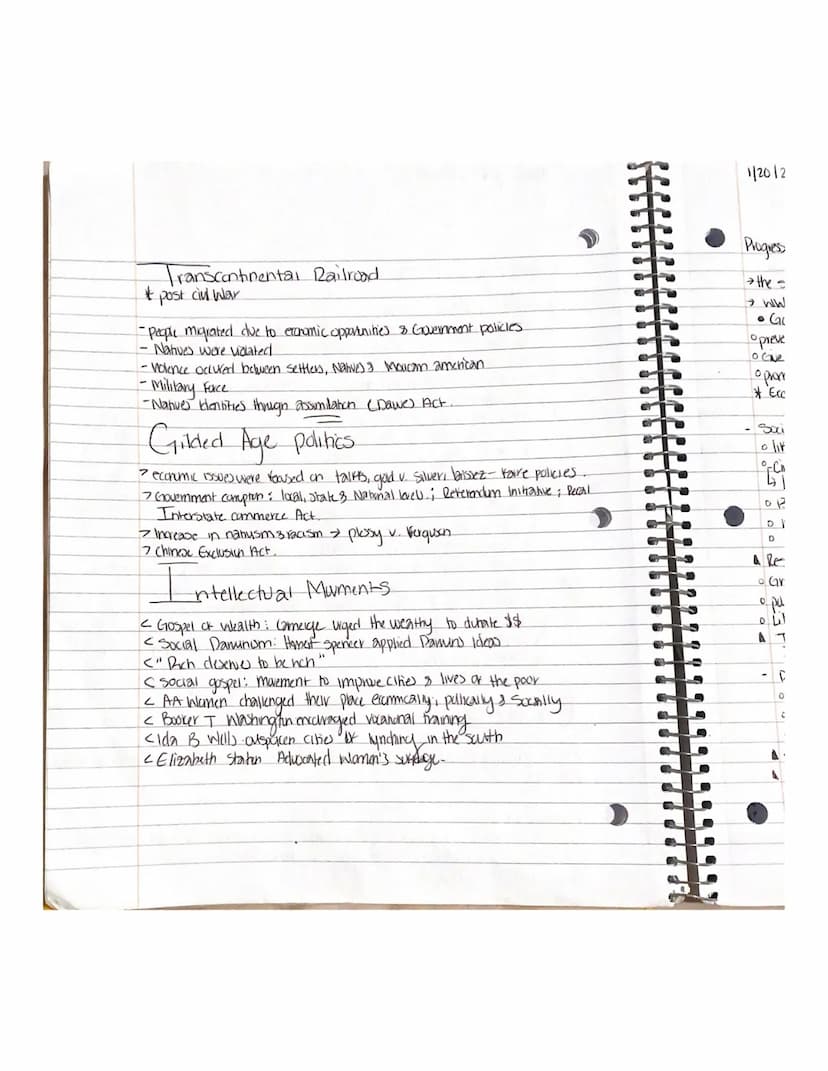 Transcontinental Railroad
* post civil War
- people migrated due to economic opportunities & Government policies
- Natives were violated
- Violence occured between settlers, Natives & Mexican american
- Military Force
- Natives identities through assimilation (Dawes) Act.
Gilded Age politics
> economic issues were focused on tariffs, gold v. silver, laissez-faire policies.
> Government corruption: local, state & National levels; Referendum Initiative; Recall
Interstate commerce Act.
> Increase in nativism & racism → plessy v. Ferguson
> Chinese Exclusion Act.
Intellectual Movements
< Gospel of wealth: Carnegie urged the wealthy to donate $$
< Social Darwinism: Herbert spencer applied Darwins Ideas
< "Rich deserve to be rich"
< Social gospel: movement to improve cities & lives of the poor
< AA Women challenged their place economically, politically & Socially
< Booker T Washington encouraged vocational training
< Ida B Wells outspoken lynching in the south
< Elizabeth Stanton Advocated Women's suffrage.
1/20/2
Progress
→ the
→ WW
* Ecc
- Soci